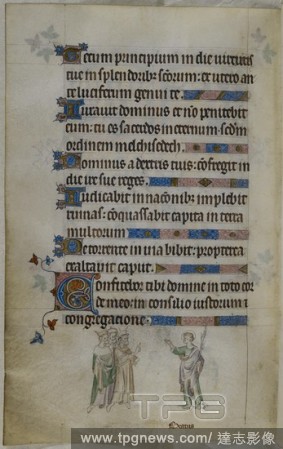 Tecum principium in die virtutis
tue in splendoribꝫ scorum: ex utero an
te luciferum genui te.
Iuravit dominus et nō penitebit
eum: tu es sacerdos in eternum: sedm
ordinem melchisedech.
Dominus a dextris tuis: cōfregit in
die ire sue reges.
Iudicabit in nacōnibꝫ implebit
ruinas: cōquassabit capita in terra
multorum
De torrente in via bibit: propterea
exaltavit caput.
Confitebor tibi domine in toto cor
de meo: in consilio iustorum et
congregacione.
TPG
www.tpgnews.com/達志影像